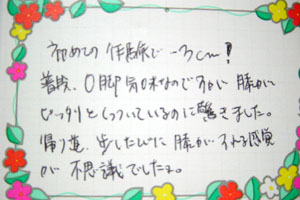 初めての体験で -3cm!
普段、O脚気味なのですが 膝が
ピッタリとくっついているのに驚きました。
帰り道、歩くたびに 膝が すれる感覚
が 不思議でしたよ。